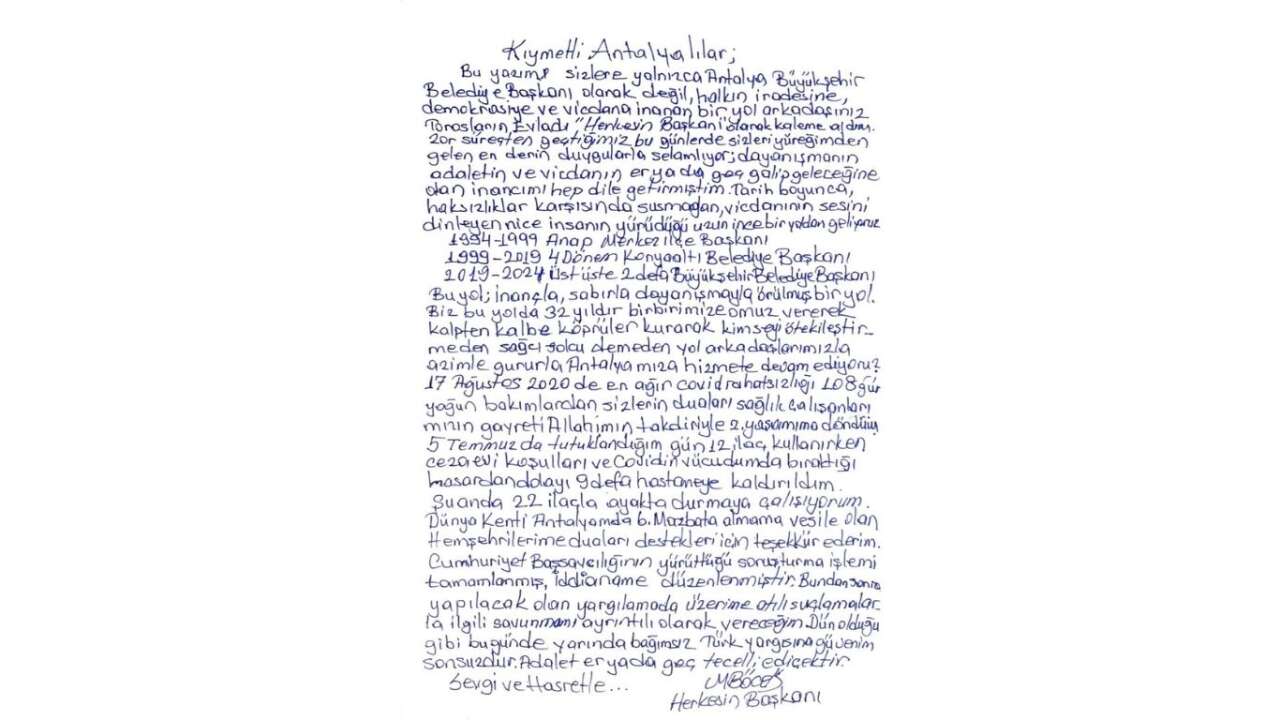 Kıymetli Antalyalılar;
Bu yazımı sizlere yalnızca Antalya Büyükşehir
Belediye Başkanı olarak değil, halkın iradesine,
demokrasiye ve vicdana inanan bir yol arkadaşınız
Torosların Evladı "Herkesin Başkanı" olarak kaleme aldım.
Zor süreçten geçtiğimiz bu günlerde sizleri yüreğimden
gelen en derin duygularla selamlıyor; dayanışmanın
adaletin ve vicdanın er ya da geç galip geleceğine
olan inancımı hep dile getirmiştim. Tarih boyunca,
haksızlıklar karşısında susmadan, vicdanının sesini
dinleyen nice insanın yürüdüğü uzun ince bir yoldan geliyoruz
1994-1999 Anap Merkez ilçe Başkanı
1999-2019 4 Dönem Konyaaltı Belediye Başkanı
2019-2024 üst üste 2 defa Büyükşehir Belediye Başkanı
Bu yol; inançla, sabırla dayanışmayla örülmüş bir yol.
Biz bu yolda 32 yıldır birbirimize omuz vererek
kalpten kalbe köprüler kurarak kimseyi ötekileştir-
meden sağcı solcu demeden yol arkadaşlarımızla
azimle gururla Antalyamıza hizmete devam ediyoruz
17 Ağustos 2020 de en ağır covid rahatsızlığı 108 gün
yoğun bakımlardan sizlerin duaları sağlık çalışanları
mızın gayreti Allahımın takdiriyle 2. yaşamıma döndüm
5 Temmuz da tutuklandığım gün 12 ilaç kullanırken
cezaevi koşulları ve Covidin vücudumda bıraktığı
hasardan dolayı 9 defa hastaneye kaldırıldım.
Şuanda 22 ilaçla ayakta durmaya çalışıyorum.
Dünya Kenti Antalyamda 6. Mazbata almama vesile olan
Hemşehrilerime duaları destekleri için teşekkür ederim.
Cumhuriyet Başsavcılığının yürüttüğü soruşturma işlemi
tamamlanmış, iddianame düzenlenmiştir. Bundan sonra
yapılacak olan yargılamada üzerime atılı suçlamalar
la ilgili savunmamı ayrıntılı olarak vereceğim. Dün olduğu
gibi bugünde yarında bağımsız Türk yargısına güvenim
sonsuzdur. Adalet er yada geç tecelli edicektir.
Sevgi ve Hasretle...
MBöcek
Herkesin Başkanı